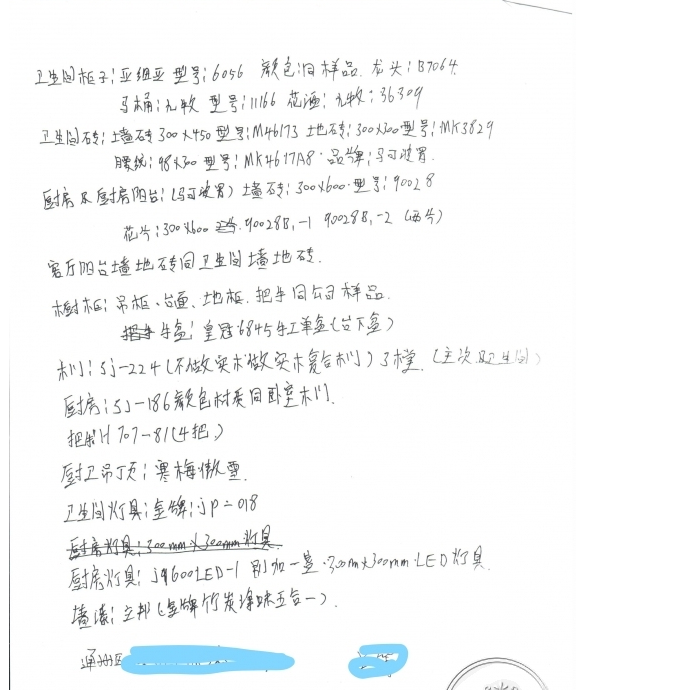 卫生间柜子:亚组亚 型号:6056 颜色:同样品 龙头:B7064
马桶:九牧 型号:11166 花洒:九牧:36309
卫生间砖:墙砖300×450型号:M46173 地砖:300×300型号:MK3829
腰线:98×300 型号:MK4617A8·品牌:马可波罗.
厨房及厨房阳台:(马可波罗)墙砖:300×600·型号:90028
花片:300×600 90028B,-1 90028B,-2 (两片)
客厅阳台墙地砖同卫生间墙地砖.
橱柜:吊柜、台面、地柜.把手同公司样品.
盆:皇冠6845手工单盆(台下盆)
木门:SJ-224(不做实木做实木复合木门)3樘 (主次卫生间)
厨房:SJ-186颜色材质同卧室木门.
把手H707-81(4把)
厨卫吊顶:寒梅傲雪
卫生间灯具:金牌:jp-018
厨房灯具:300mm×300mm灯具
厨房灯具:j9600LED-1 别加一盏·300m×300mm·LED灯具.
墙漆:立邦(金牌竹炭净味五合一).
通州区